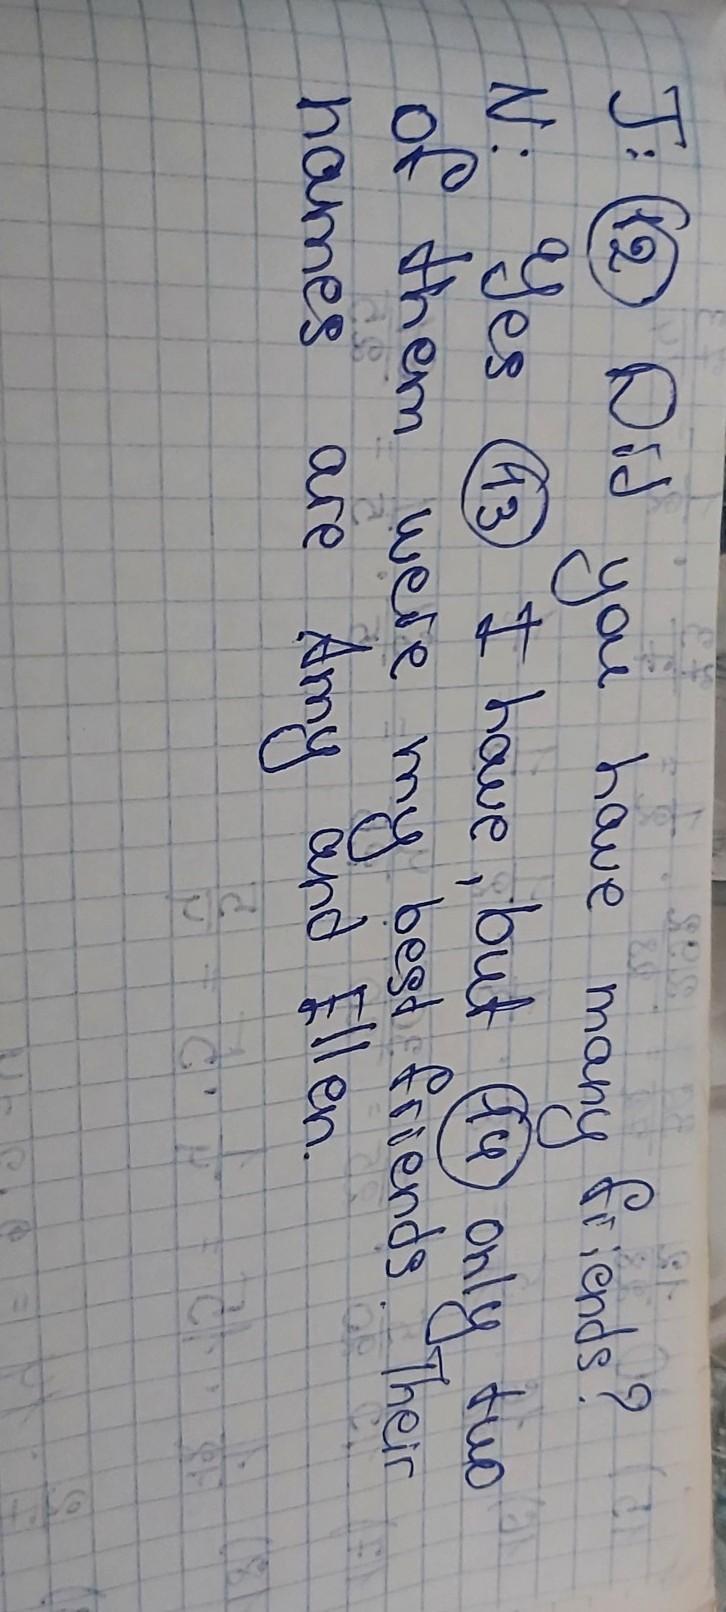 J: 12 Did you have many friends?
N: Yes 13 I have, but 14 only two
of them were my best friends. Their
names are Amy and Ellen.